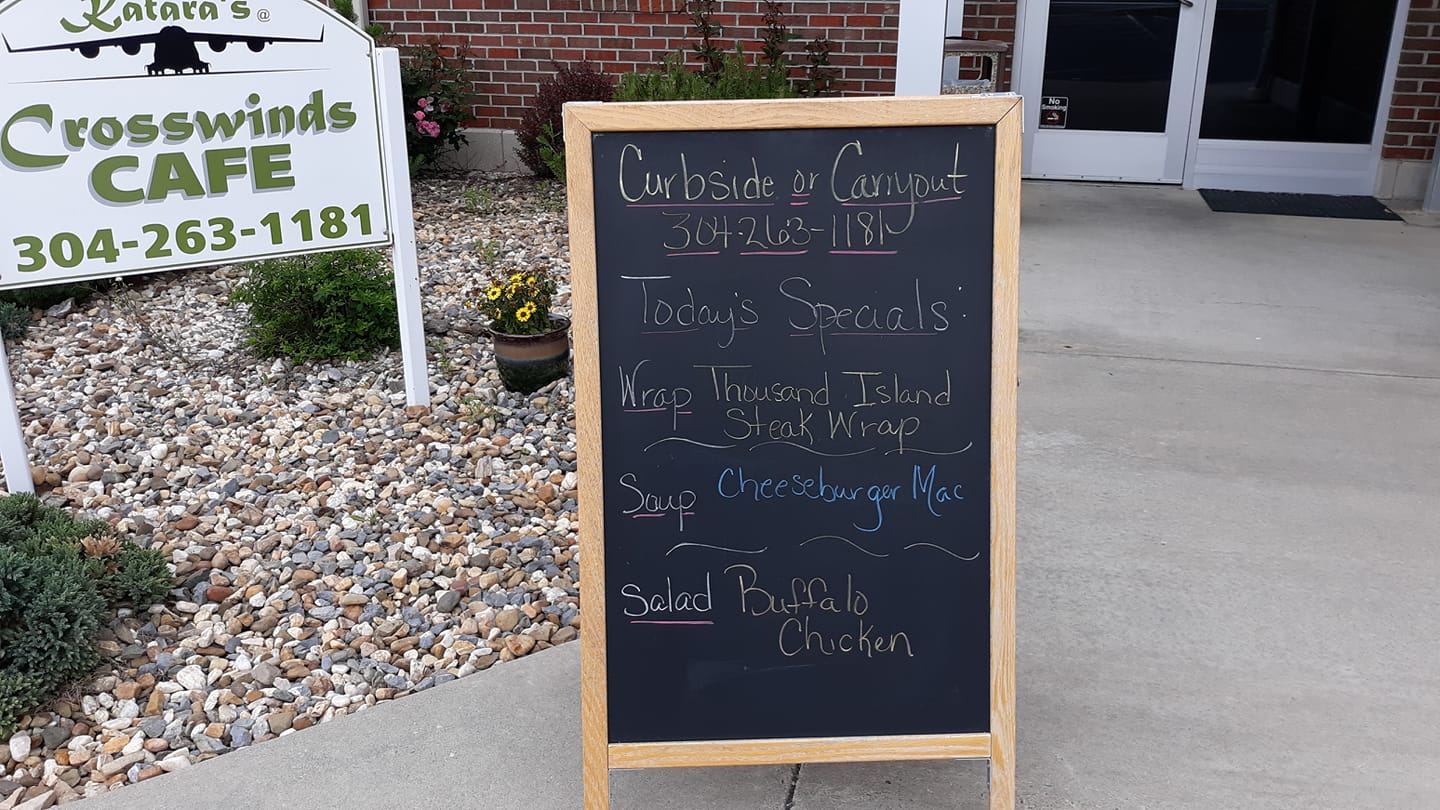 Katara's @
Crosswinds
CAFE
304-263-1181
No
Smoking
Curbside or Carryout
304-263-1181
Today's Specials:
Wrap Thousand Island
Steak Wrap
Soup Cheeseburger Mac
Salad Buffalo
Chicken